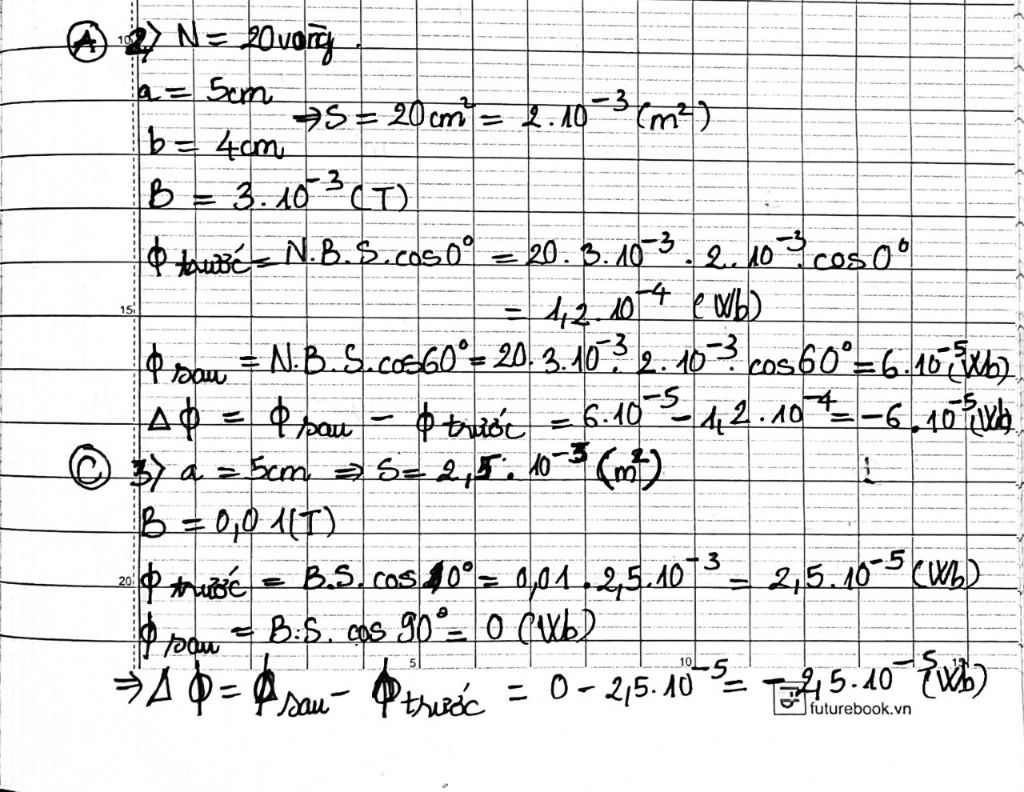 (A) 2) N = 20 vòng.
a = 5cm
⇒ S = 20 cm² = 2.10⁻³ (m²)
b = 4cm
B = 3.10⁻³ (T)
ϕ trước = N.B.S.cos0° = 20. 3.10⁻³ . 2.10⁻³. cos0°
= 1,2.10⁻⁴ (Wb)
ϕ sau = N.B.S.cos60° = 20.3.10⁻³. 2.10⁻³. cos60° = 6.10⁻⁵ (Wb)
Δϕ = ϕ sau - ϕ trước = 6.10⁻⁵ - 1,2.10⁻⁴ = -6.10⁻⁵ (Wb)
(C) 3) a = 5cm ⇒ S = 2,5.10⁻³ (m²)
B = 0,01 (T)
ϕ trước = B.S. cos 0° = 0,01.2,5.10⁻³ = 2,5.10⁻⁵ (Wb)
ϕ sau = B.S. cos 90° = 0 (Wb)
⇒ Δϕ = ϕ sau - ϕ trước = 0 - 2,5.10⁻⁵ = -2,5.10⁻⁵ (Wb)
futurebook.vn
10
15
20
5
10